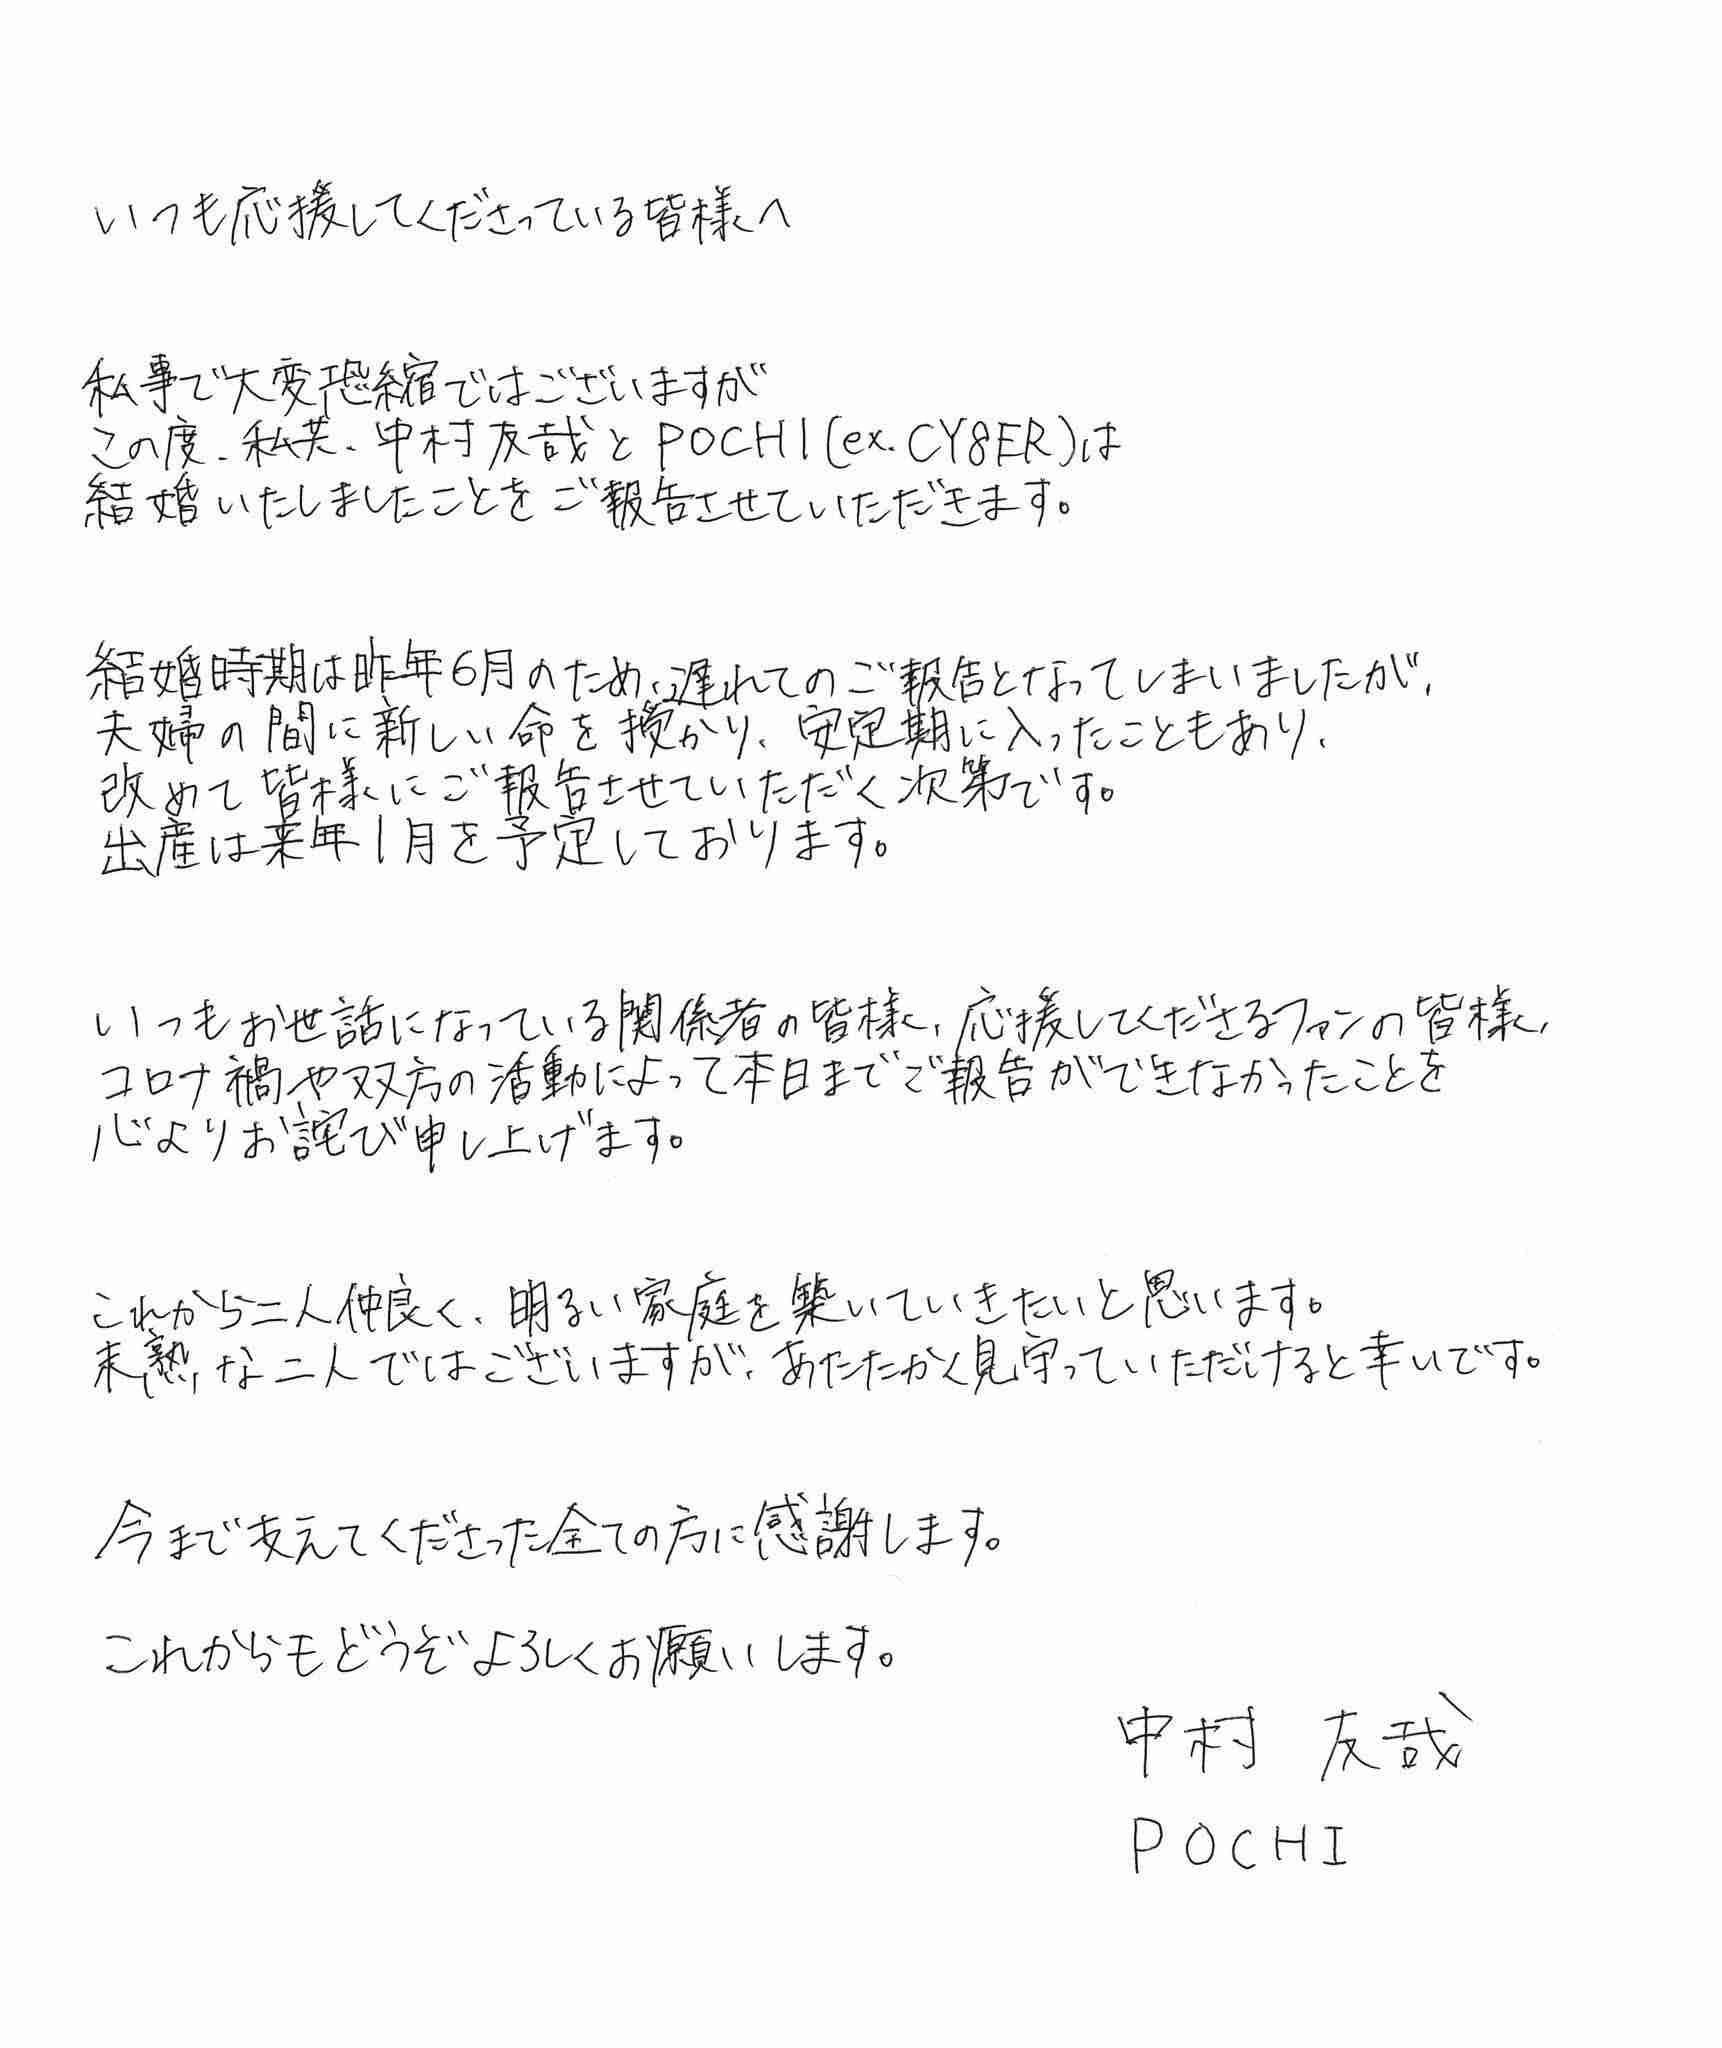 いつも応援してくださっている皆様へ
私事で大変恐縮ではございますが
この度、私共、中村友哉とPOCHI(ex.CY8ER)は
結婚いたしましたことをご報告させていただきます。
結婚時期は昨年6月のため、遅れてのご報告となってしまいましたが、
夫婦の間に新しい命を授かり、安定期に入ったこともあり、
改めて皆様にご報告させていただく次第です。
出産は来年1月を予定しております。
いつもお世話になっている関係者の皆様、応援してくださるファンの皆様、
コロナ禍や双方の活動によって本日までご報告ができなかったことを
心よりお詫び申し上げます。
これから二人仲良く、明るい家庭を築いていきたいと思います。
未熟な二人ではございますが、あたたかく見守っていただけると幸いです。
今まで支えてくださった全ての方に感謝します。
これからもどうぞよろしくお願いします。
中村 友哉
POCHI